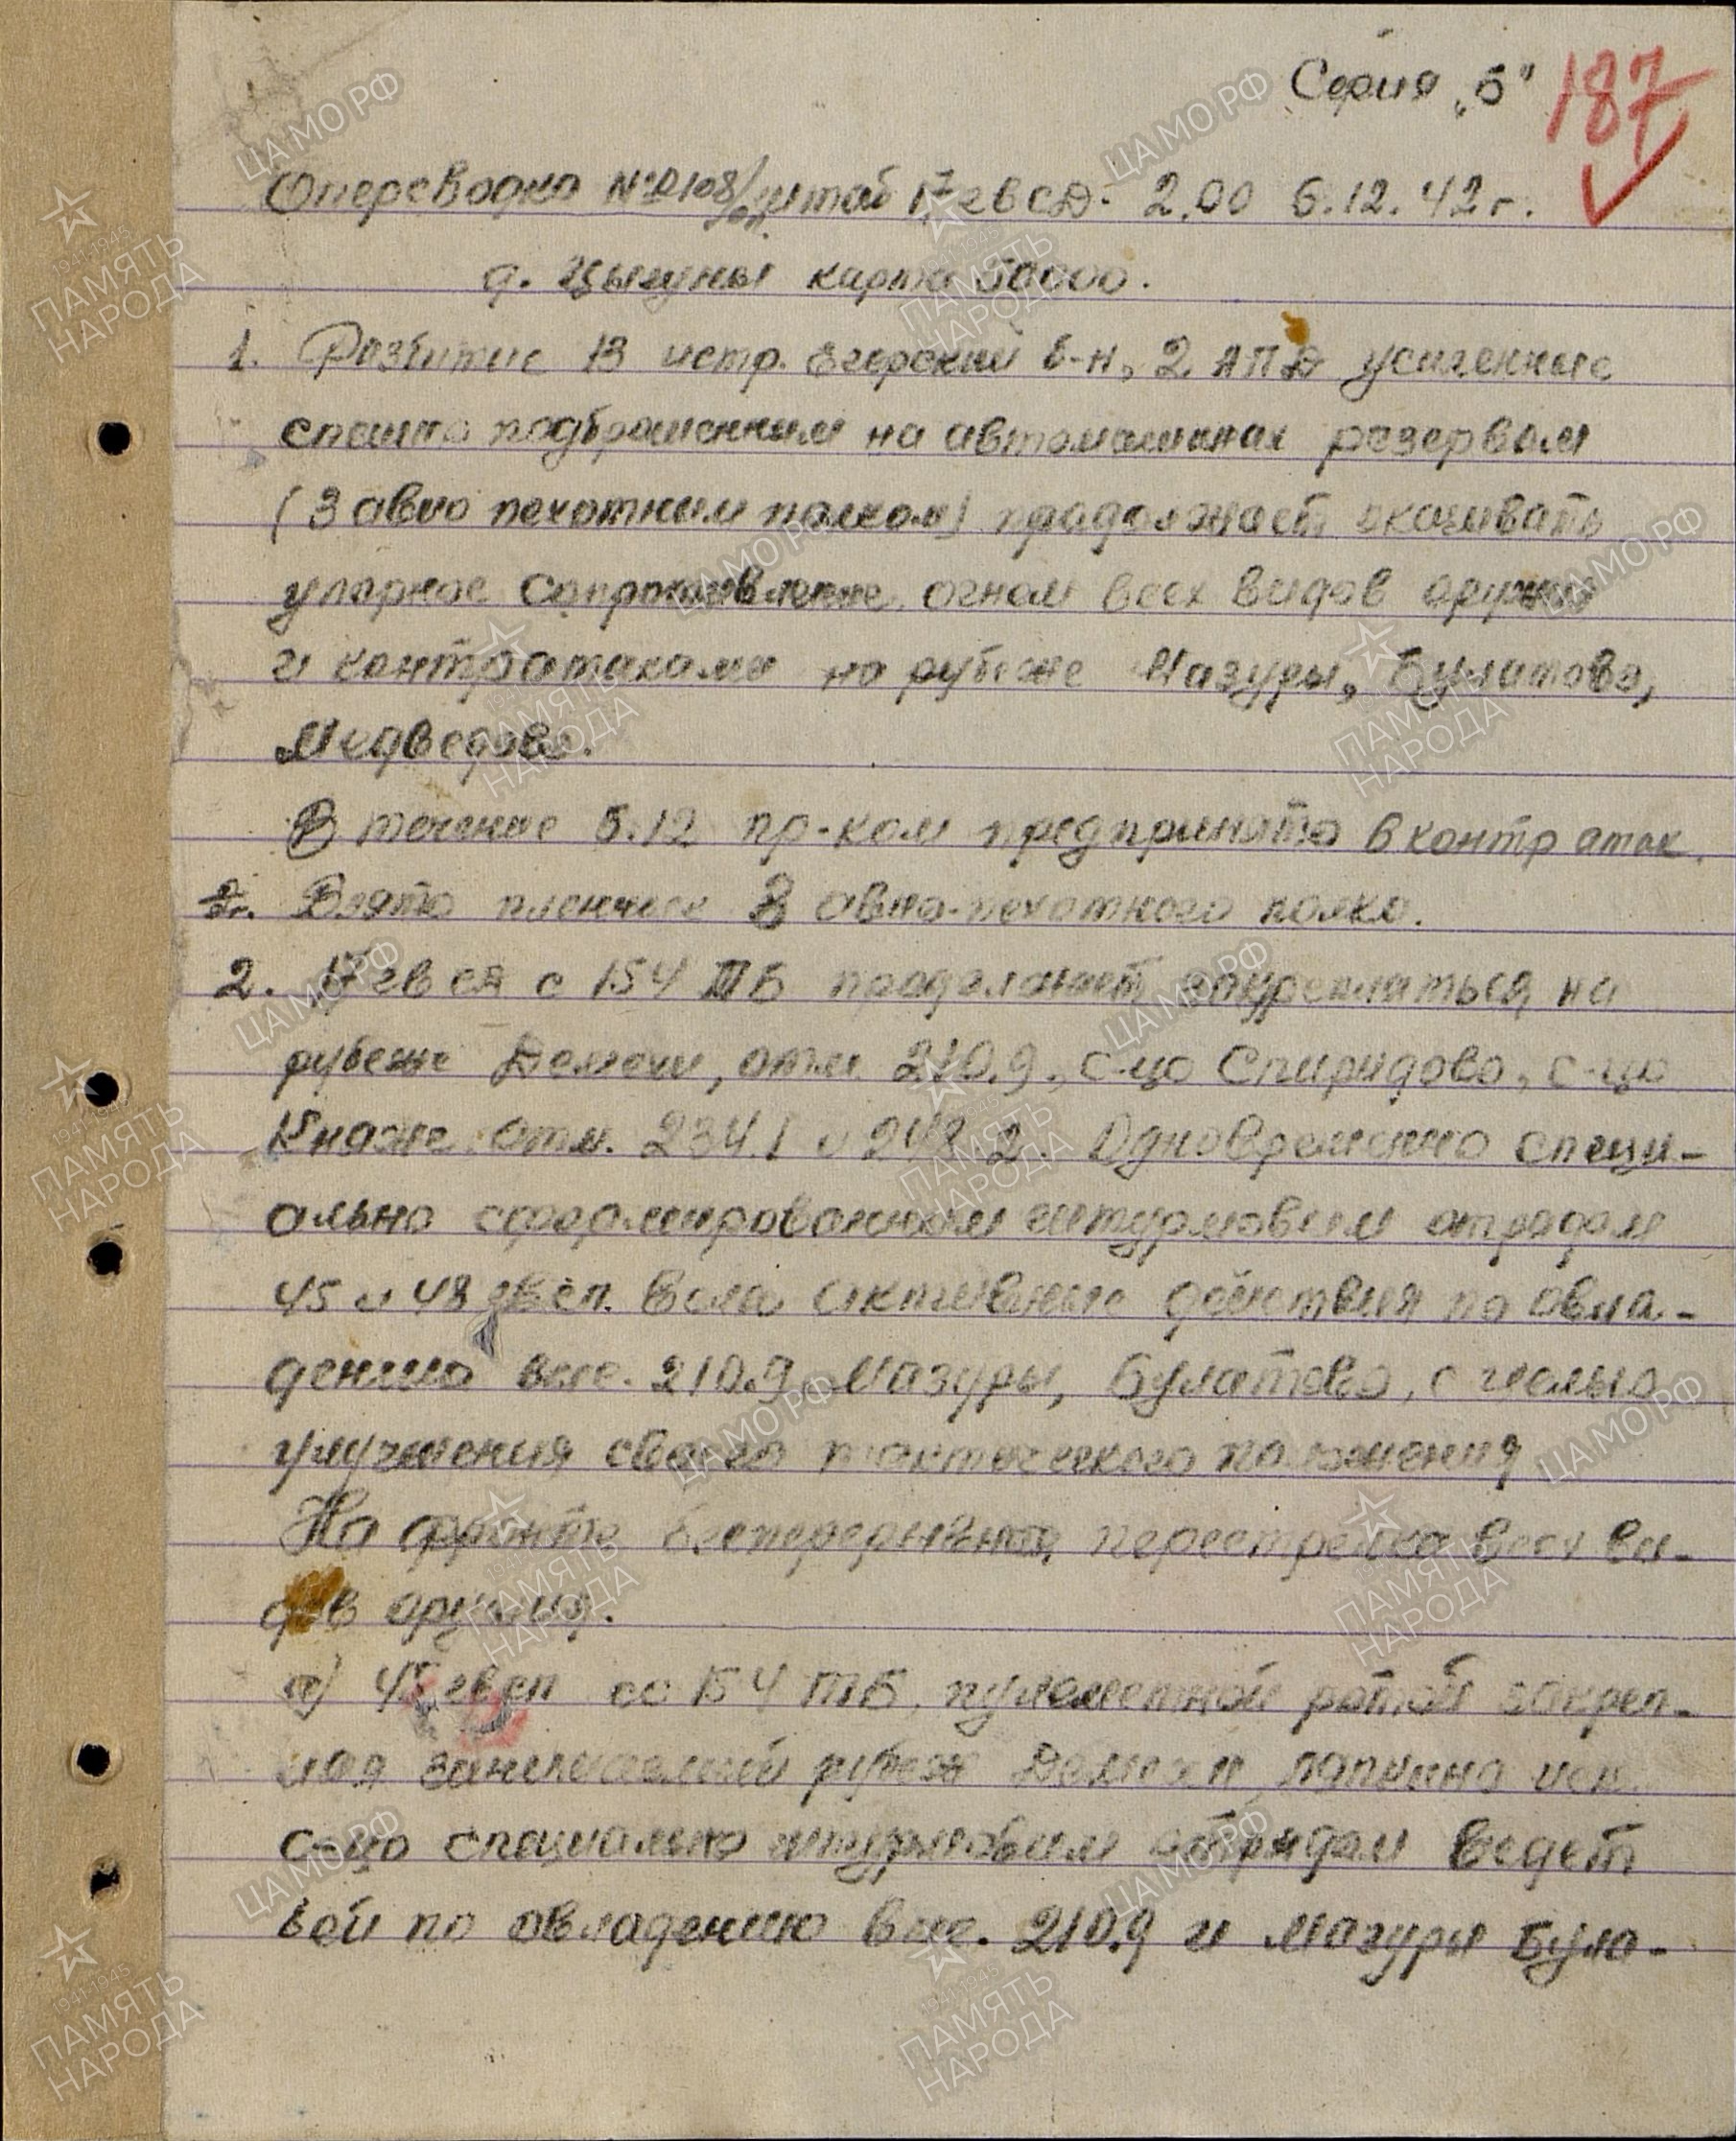 Серия „Б"
187
Оперсводка №0108/оп. штаб 17 гвСД. 2.00 6.12.42 г.
д. Цыгуны карта 50000.
1. Разбитые 13 истр. Егерский б-н, 2 АПД усиленные
спешно подброшенным на автомашинах резервом
(3 авио пехотным полком) продолжает оказывать
упорное сопротивление огнем всех видов оружия
и контратаками на рубеже Мазуры, Булатово,
Медведово.
В течение 5.12 пр-ком предпринято 6 контр атак.
Взято пленных 3 авио-пехотного полка.
2. 17 гв СД с 154 ТБ продолжает закрепляться на
рубеже Демехи, отм. 210.9, с-цо Спиридово, с-цо
Княже отм. 234.1 и 248.2. Одновременно специ-
ально сформированным штурмовым отрядом
45 и 48 гвсп. вела активные действия по овла-
дению выс. 210.9 Мазуры, Булатово, с целью
улучшения своего тактического положения
На фронте беспрерывная перестрелка всех ви-
дов оружия.
а) 45 гвсп со 154 ТБ, пулеметной ротой закреп-
ляя занимаемый рубеж Демехи,
с-цо специально штурмовым отрядом ведет
бой по овладению выс. 210.9 и Мазуры Була-
ЦАМО.РФ
1941-1945
ПАМЯТЬ
НАРОДА